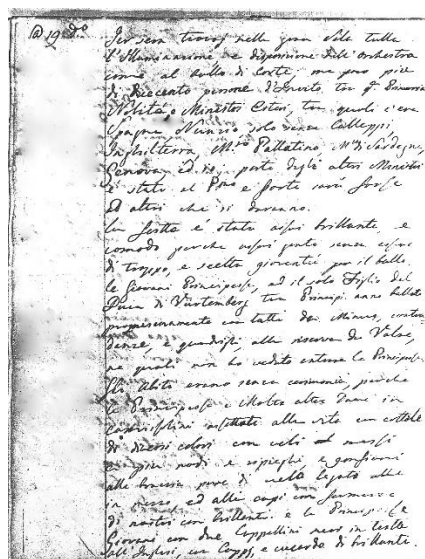 @ 19 do
Jer sera trovossi nella gran Sala tutta
l'Illuminazione e disposizione dell'Orchestra
come al ballo di Corte, ma poco più
di duecento persone d'Invito, tra p.a Primaria
Nobiltà, e Ministri Esteri, tra quali c'era
Spagna Nunzio solo senza Caleppi,
Inghilterra, Palatino, Mse di Sardegna,
Genova ed io, parte degli altri Ministri
è stata al Pmo e forte sarà forse
ed altri che si daranno.
La festa è stata assai brillante, e
comoda perche assai gente senza esser
di troppo, e scelta gioventù per il ballo
le Giovani Principesse, ed il solo Figlio del
Duca di Virtemberg tra Principi anno ballato
promiscuamente con tutti dei Minuè, contra
danze, e quadriglie alla riserva de Valse,
ne quali non ho veduto entrare le Principesse
Gli Abiti erano senza cerimonia, perche
le Principesse e Molte altre Dame in
alla vita con
di diversi colori con veli ed
nodi e e
alle braccia pure di velo legato alle
ed alli capi con
di nastri con brillanti e la Principessa
Giovani con due Cappellini neri in testa
all'Inglese, con e di brillante.